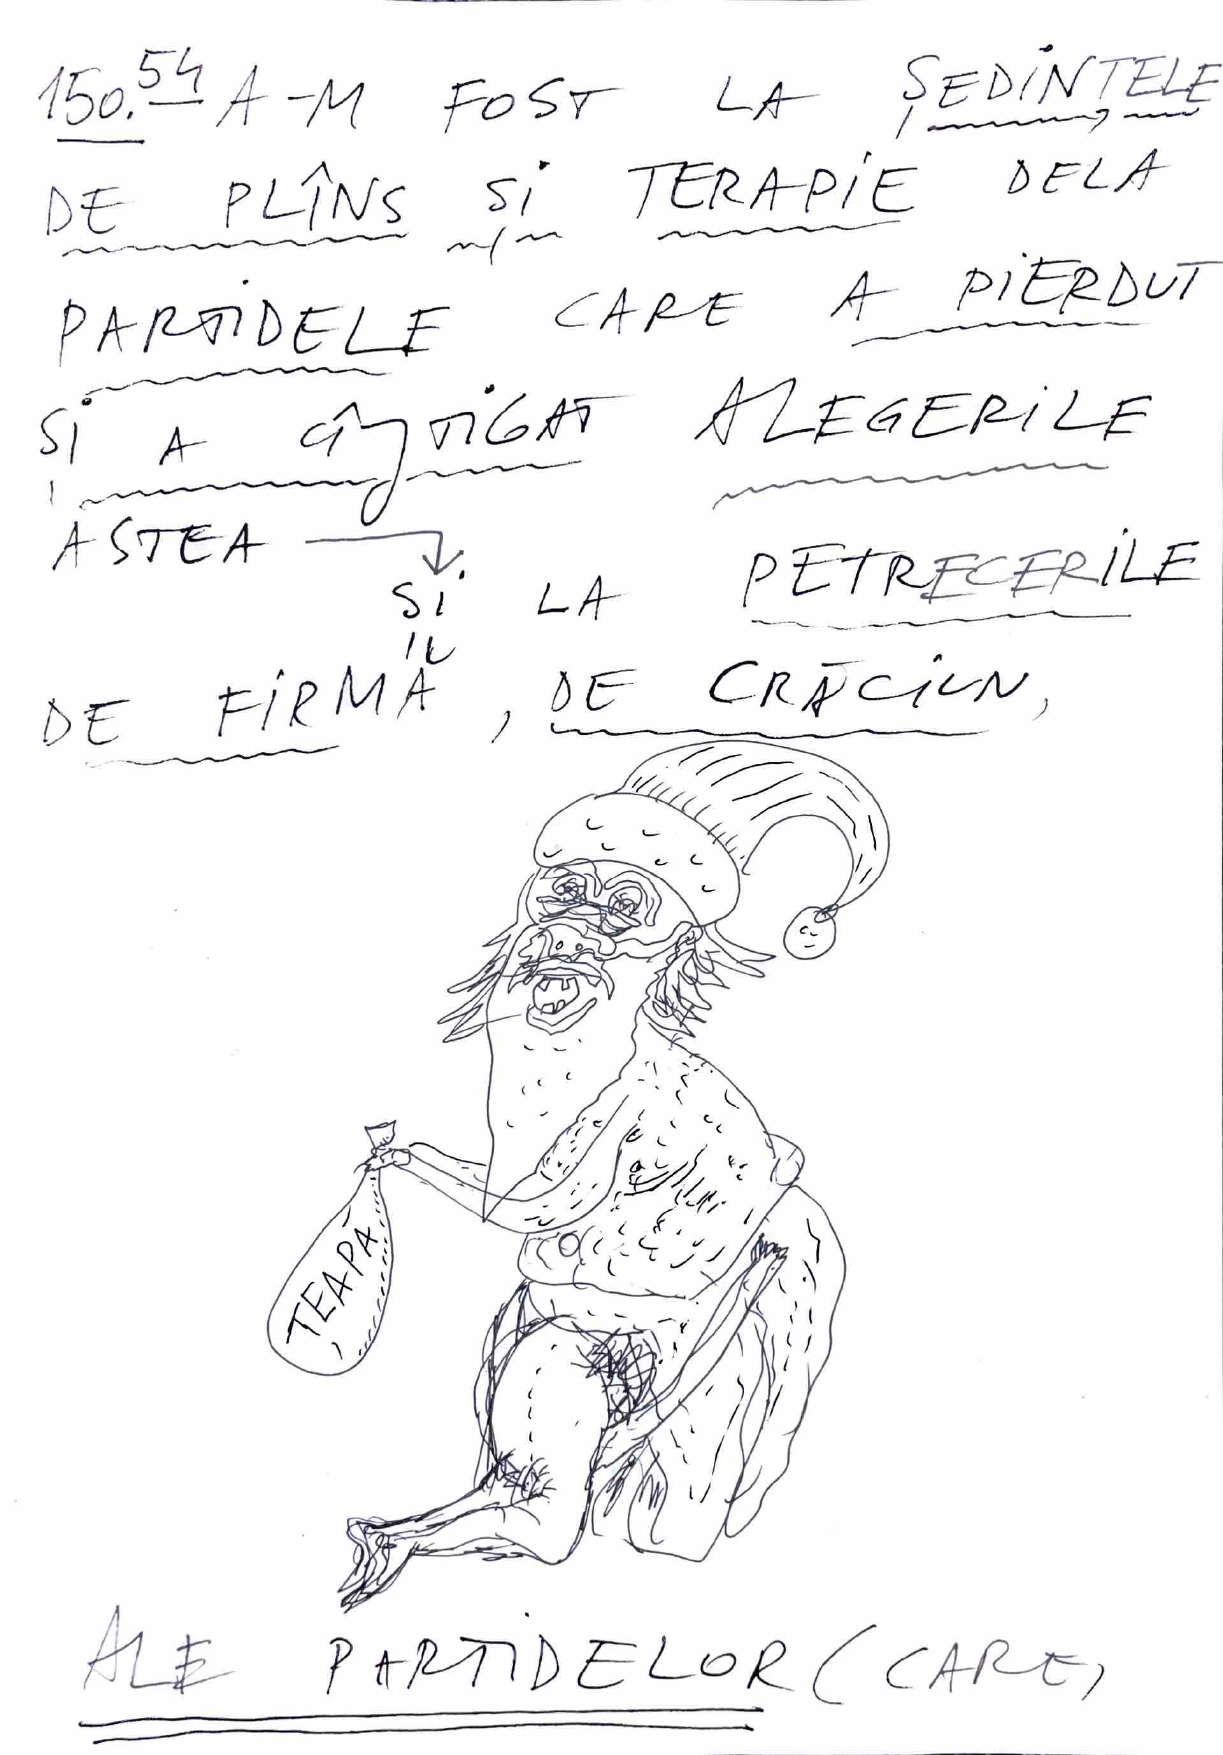 150.54 A-M FOST LA ȘEDINȚELE
DE PLÎNS ȘI TERAPIE DELA
PARTIDELE CARE A PIERDUT
ȘI A CÎȘTIGAT ALEGERILE
ASTEA
ȘI LA PETRECERILE
DE FIRMĂ, DE CRĂCIUN,
ȚEAPĂ
ALE PARTIDELOR (CARE,